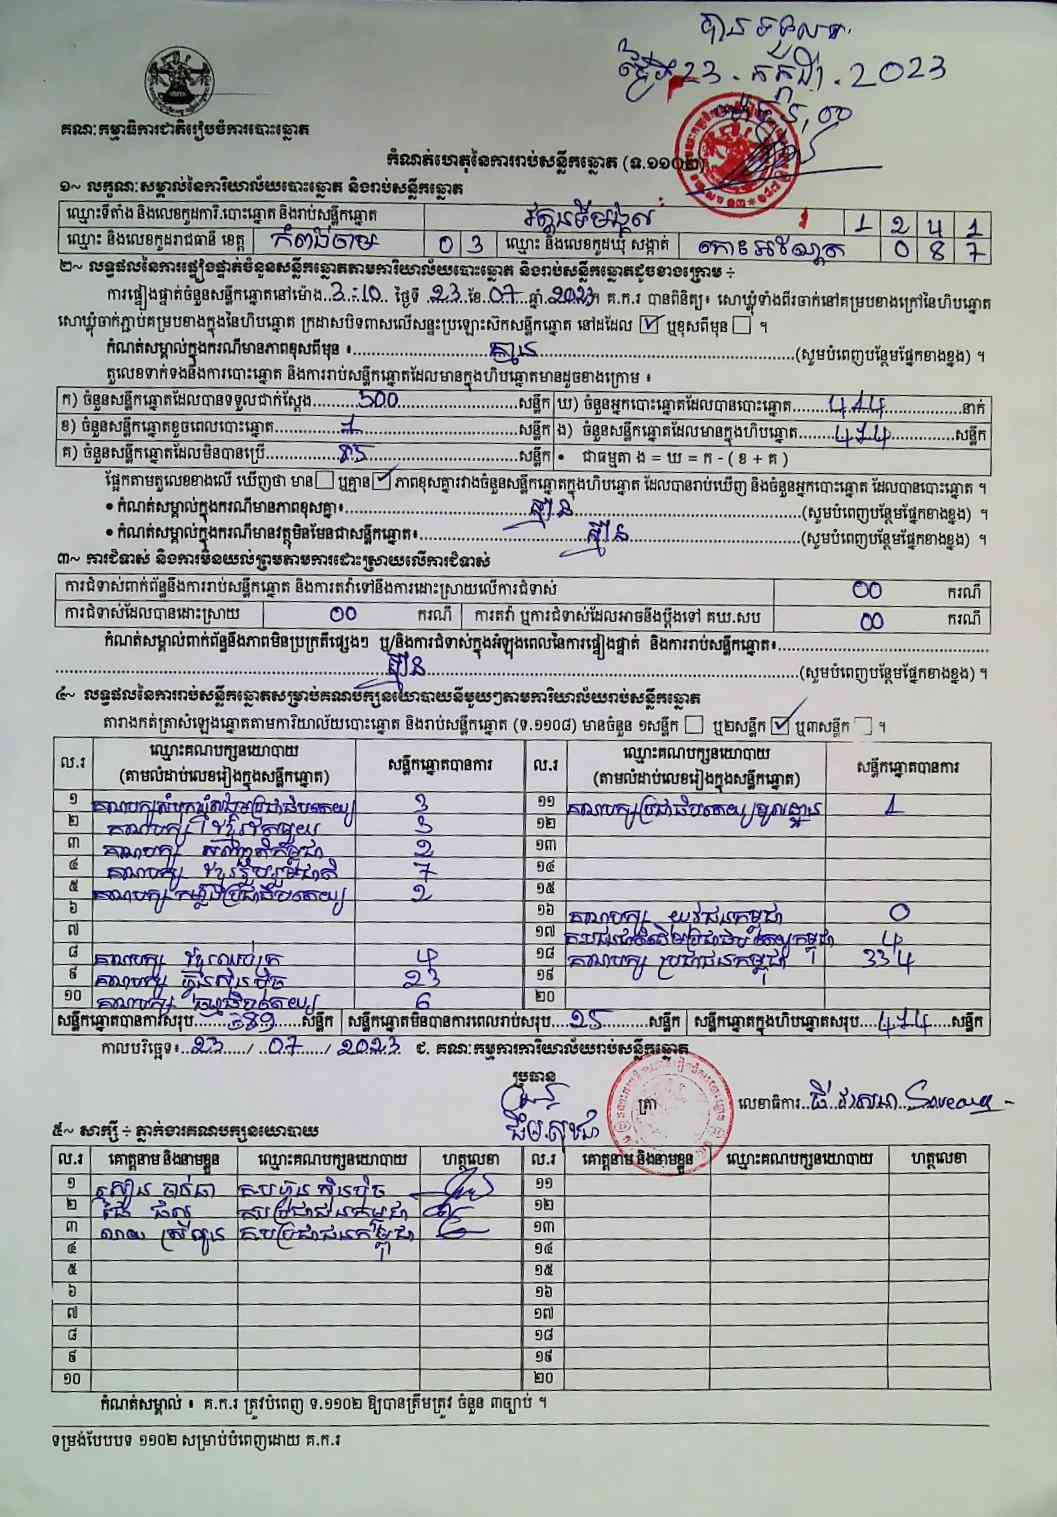 បានទទួល
ថ្ងៃទី 23 . កក្កដា . 2023
គណៈកម្មាធិការជាតិរៀបចំការបោះឆ្នោត
កំណត់ហេតុនៃការរាប់សន្លឹកឆ្នោត (ទ.១១០២)
១~ លក្ខណៈសម្គាល់នៃការិយាល័យបោះឆ្នោត និងរាប់សន្លឹកឆ្នោត
ឈ្មោះទីតាំង និងលេខកូដការិ.បោះឆ្នោត និងរាប់សន្លឹកឆ្នោត 1 2 4 1
ឈ្មោះ និងលេខកូដរាជធានី ខេត្ត កំពង់ចាម 0 3 ឈ្មោះ និងលេខកូដឃុំ សង្កាត់ 0 8 7
២~ លទ្ធផលនៃការផ្ទៀងផ្ទាត់ចំនួនសន្លឹកឆ្នោតតាមការិយាល័យបោះឆ្នោត និងរាប់សន្លឹកឆ្នោតដូចខាងក្រោម ÷
ការផ្ទៀងផ្ទាត់ចំនួនសន្លឹកឆ្នោតនៅម៉ោង..3:10.. ថ្ងៃទី..23..ខែ.07..ឆ្នាំ.2023។ គ.ក.រ បានពិនិត្យ៖ សោឃ្លុំទាំងពីរចាក់នៅគម្របខាងក្រៅនៃហិបឆ្នោត
សោឃ្លុំចាក់ភ្ជាប់គម្របខាងក្នុងនៃហិបឆ្នោត ក្រដាសបិទពាសលើសន្ទះប្រឡោះស៊កសន្លឹកឆ្នោត នៅដដែល ☑ ឬខុសពីមុន ☐ ។
កំណត់សម្គាល់ក្នុងករណីមានភាពខុសពីមុន ៖......គ្មាន......(សូមបំពេញបន្ថែមផ្នែកខាងខ្នង) ។
តួលេខទាក់ទងនឹងការបោះឆ្នោត និងការរាប់សន្លឹកឆ្នោតដែលមានក្នុងហិបឆ្នោតមានដូចខាងក្រោម ៖
ក) ចំនួនសន្លឹកឆ្នោតដែលបានទទួលជាក់ស្តែង......500......សន្លឹក ឃ) ចំនួនអ្នកបោះឆ្នោតដែលបានបោះឆ្នោត......414......នាក់
ខ) ចំនួនសន្លឹកឆ្នោតខូចពេលបោះឆ្នោត......1......សន្លឹក ង) ចំនួនសន្លឹកឆ្នោតដែលមានក្នុងហិបឆ្នោត......414......សន្លឹក
គ) ចំនួនសន្លឹកឆ្នោតដែលមិនបានប្រើ......85......សន្លឹក • ជាធម្មតា ង = ឃ = ក - ( ខ + គ )
ផ្អែកតាមតួលេខខាងលើ ឃើញថា មាន ☐ ឬគ្មាន ☑ ភាពខុសគ្នារវាងចំនួនសន្លឹកឆ្នោតក្នុងហិបឆ្នោត ដែលបានរាប់ឃើញ និងចំនួនអ្នកបោះឆ្នោត ដែលបានបោះឆ្នោត ។
• កំណត់សម្គាល់ក្នុងករណីមានភាពខុសគ្នា៖......គ្មាន......(សូមបំពេញបន្ថែមផ្នែកខាងខ្នង) ។
• កំណត់សម្គាល់ក្នុងករណីមានវត្ថុមិនមែនជាសន្លឹកឆ្នោត៖......គ្មាន......(សូមបំពេញបន្ថែមផ្នែកខាងខ្នង) ។
៣~ ការជំទាស់ និងការមិនយល់ព្រមតាមការដោះស្រាយលើការជំទាស់
ការជំទាស់ពាក់ព័ន្ធនឹងការរាប់សន្លឹកឆ្នោត និងការតវ៉ាទៅនឹងការដោះស្រាយលើការជំទាស់ 00 ករណី
ការជំទាស់ដែលបានដោះស្រាយ 00 ករណី ការតវ៉ា ឬការជំទាស់ដែលអាចនឹងប្តឹងទៅ គឃ.សប 00 ករណី
កំណត់សម្គាល់ពាក់ព័ន្ធនឹងភាពមិនប្រក្រតីផ្សេងៗ ឬ/និងការជំទាស់ក្នុងអំឡុងពេលនៃការផ្ទៀងផ្ទាត់ និងការរាប់សន្លឹកឆ្នោត៖......
......គ្មាន......(សូមបំពេញបន្ថែមផ្នែកខាងខ្នង) ។
៤~ លទ្ធផលនៃការរាប់សន្លឹកឆ្នោតសម្រាប់គណបក្សនយោបាយនីមួយៗតាមការិយាល័យរាប់សន្លឹកឆ្នោត
តារាងកត់ត្រាសំឡេងឆ្នោតតាមការិយាល័យបោះឆ្នោត និងរាប់សន្លឹកឆ្នោត (ទ.១១០៨) មានចំនួន ១សន្លឹក ☐ ឬ២សន្លឹក ☑ ឬ៣សន្លឹក ☐ ។
ល.រ ឈ្មោះគណបក្សនយោបាយ (តាមលំដាប់លេខរៀងក្នុងសន្លឹកឆ្នោត) សន្លឹកឆ្នោតបានការ ល.រ ឈ្មោះគណបក្សនយោបាយ (តាមលំដាប់លេខរៀងក្នុងសន្លឹកឆ្នោត) សន្លឹកឆ្នោតបានការ
១ គណបក្សសំបុកឃ្មុំសង្គមប្រជាធិបតេយ្យ 3 ១១ គណបក្សប្រជាធិបតេយ្យមូលដ្ឋាន 1
២ គណបក្ស ខ្មែរតែមួយ 3 ១២
៣ គណបក្ស សញ្ជាតិកម្ពុជា 2 ១៣
៤ គណបក្ស ខ្មែររួបរួមជាតិ 7 ១៤
៥ គណបក្ស កម្លាំងប្រជាធិបតេយ្យ 2 ១៥
៦ ១៦ គណបក្ស យុវជនកម្ពុជា 0
៧ ១៧ 4
៨ គណបក្ស ខ្មែរឈប់ក្រ 4 ១៨ គណបក្ស ប្រជាជនកម្ពុជា 334
៩ គណបក្ស ហ៊្វុនស៊ិនប៉ិច 23 ១៩
១០ គណបក្ស ធម្មាធិបតេយ្យ 6 ២០
សន្លឹកឆ្នោតបានការសរុប......389......សន្លឹក សន្លឹកឆ្នោតមិនបានការពេលរាប់សរុប....25......សន្លឹក សន្លឹកឆ្នោតក្នុងហិបឆ្នោតសរុប....414....សន្លឹក
កាលបរិច្ឆេទ៖..23...../..07...../ 2023 ជ. គណៈកម្មការការិយាល័យរាប់សន្លឹកឆ្នោត
ប្រធាន
ត្រា លេខាធិការ
៥~ សាក្សី ÷ ភ្នាក់ងារគណបក្សនយោបាយ
ល.រ គោត្តនាម និងនាមខ្លួន ឈ្មោះគណបក្សនយោបាយ ហត្ថលេខា ល.រ គោត្តនាម និងនាមខ្លួន ឈ្មោះគណបក្សនយោបាយ ហត្ថលេខា
១ គបហ៊្វុនស៊ិនប៉ិច ១១
២ គបប្រជាជនកម្ពុជា ១២
៣ គបប្រជាជនកម្ពុជា ១៣
៤ ១៤
៥ ១៥
៦ ១៦
៧ ១៧
៨ ១៨
៩ ១៩
១០ ២០
កំណត់សម្គាល់ ៖ គ.ក.រ ត្រូវបំពេញ ទ.១១០២ ឱ្យបានត្រឹមត្រូវ ចំនួន ៣ច្បាប់ ។
ទម្រង់បែបបទ ១១០២ សម្រាប់បំពេញដោយ គ.ក.រ